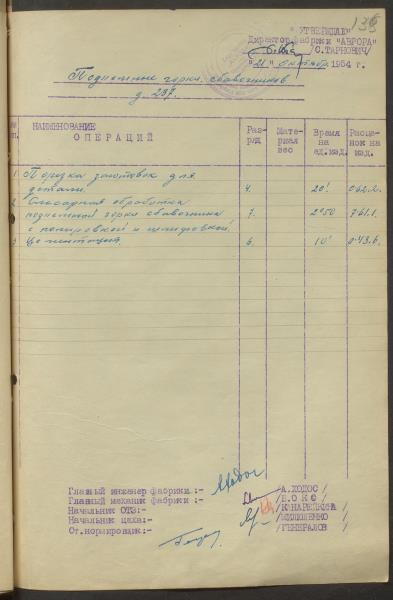 136
" УТВЕРЖДАЮ"
Директор фабрики "АВРОРА"
/С.ТАРНОВИЧ/
"21" октября 1954 г.
Подъемные горки, сбавочников
д. 287.
№ пп. НАИМЕНОВАНИЕ ОПЕРАЦИЙ Раз- ряд Мате- риал вес Время на ед.изд. Расце- нок на изд.
1 Порезка заготовок для
детали. 4. 20' 062.2.
2 Слесарная обработка
подъемной горки сбавочника
с полировкой и шлифовкой. 7. 2°50 761.1.
3 Цементация. 6. 10' 0-43.6.
Главный инженер фабрики:- /А.ХОДОС /
Главный механик фабрики:- /Б.О К С /
Начальник ОТК:- /КАНАРЕЙКИНА /
Начальник цеха:- /МИЛЮТЕНКО /
Ст.нормировщик:- /ГЕНЕРАЛОВ /